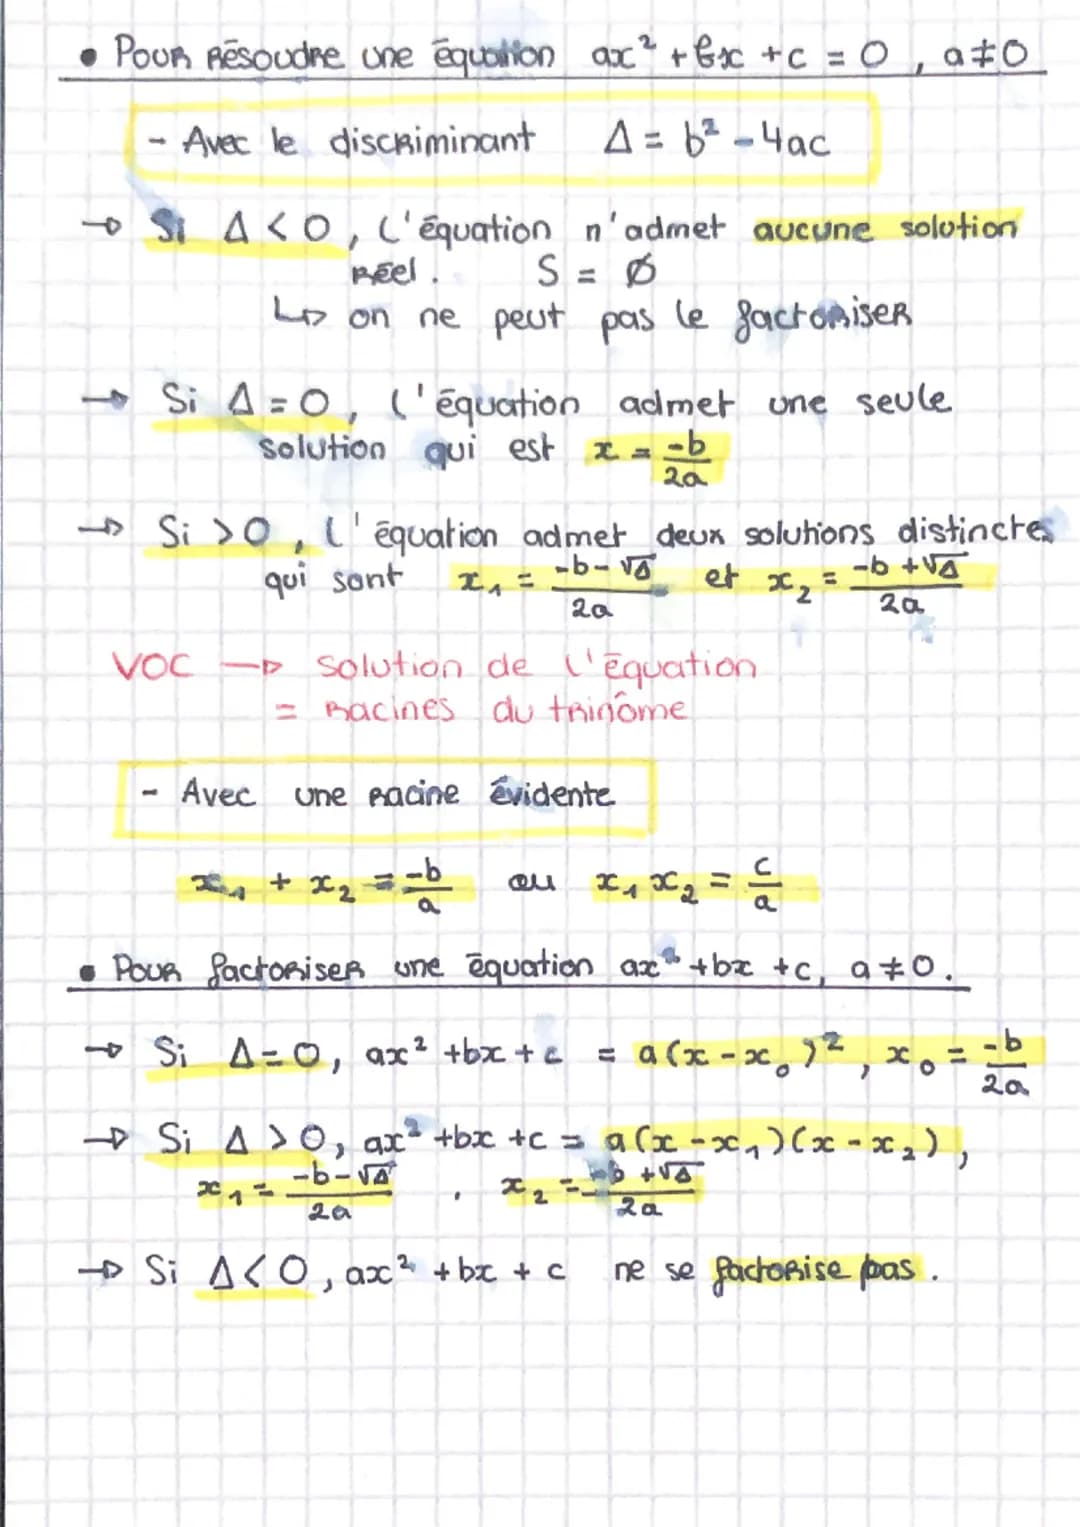 • Pour Résoudre une équation ax² + bx + c = 0, a ≠ 0
- Avec le discriminant Δ = b² - 4ac
→ Si Δ < 0, l'équation n'admet aucune solution
Réel. S = Ø
↳ on ne peut pas le factoriser
→ Si Δ = 0, l'équation admet une seule
solution qui est x = -b/2a
→ Si > 0, l'équation admet deux solutions distinctes
qui sont x₁ = (-b-√Δ)/2a et x₂ = (-b+√Δ)/2a
VOC → solution de l'équation
= Racines du trinôme
- Avec une racine évidente
x₁ + x₂ = -b/a ou x₁x₂ = c/a
• Pour factoriser une équation ax² + bx + c, a ≠ 0.
→ Si Δ = 0, ax² + bx + c = a(x - x₀)², x₀ = -b/2a
→ Si Δ > 0, ax² + bx + c = a(x - x₁)(x - x₂),
x₁ = (-b-√Δ)/2a, x₂ = (-b+√Δ)/2a
→ Si Δ < 0, ax² + bx + c ne se factorise pas.